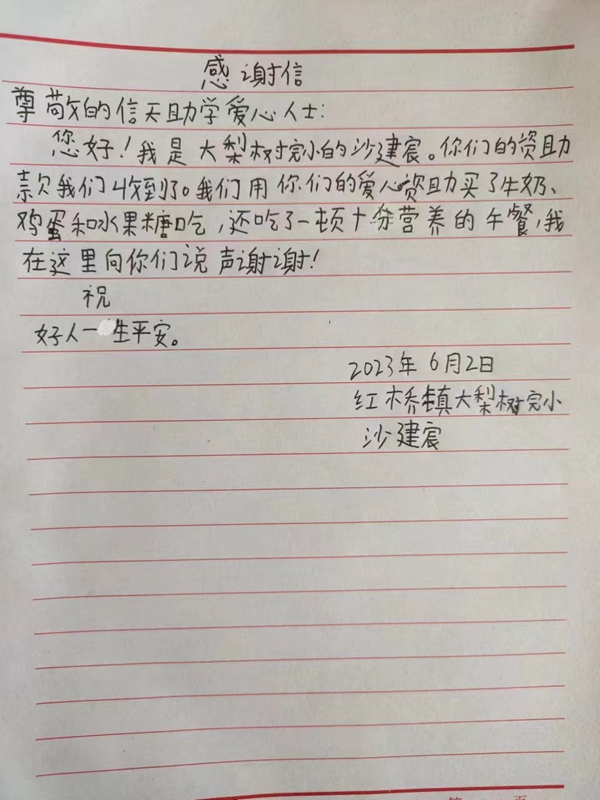 感谢信
尊敬的信天助学爱心人士:
您好!我是大梨树完小的沙建宸。你们的资助
款我们收到了。我们用你们的爱心资助买了牛奶、
鸡蛋和水果糖吃,还吃了一顿十分营养的午餐,我
在这里向你们说声谢谢!
祝
好人一生平安。
2023年6月2日
红桥镇大梨树完小
沙建宸